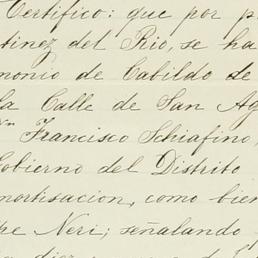 Certifico: que por p
tinez del Rio, se ha
monio de Cabildo de
la Calle de San Ag
Francisco Schiafino,
Gobierno del Distrito
mortisacion, como bien
pe Neri; señalando